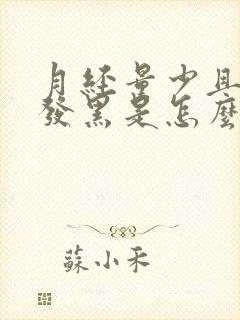 月經量少且
發黑是怎麼
蘇小禾